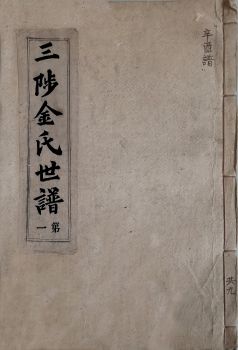 辛酉譜
共九
三陟金氏世譜
第一